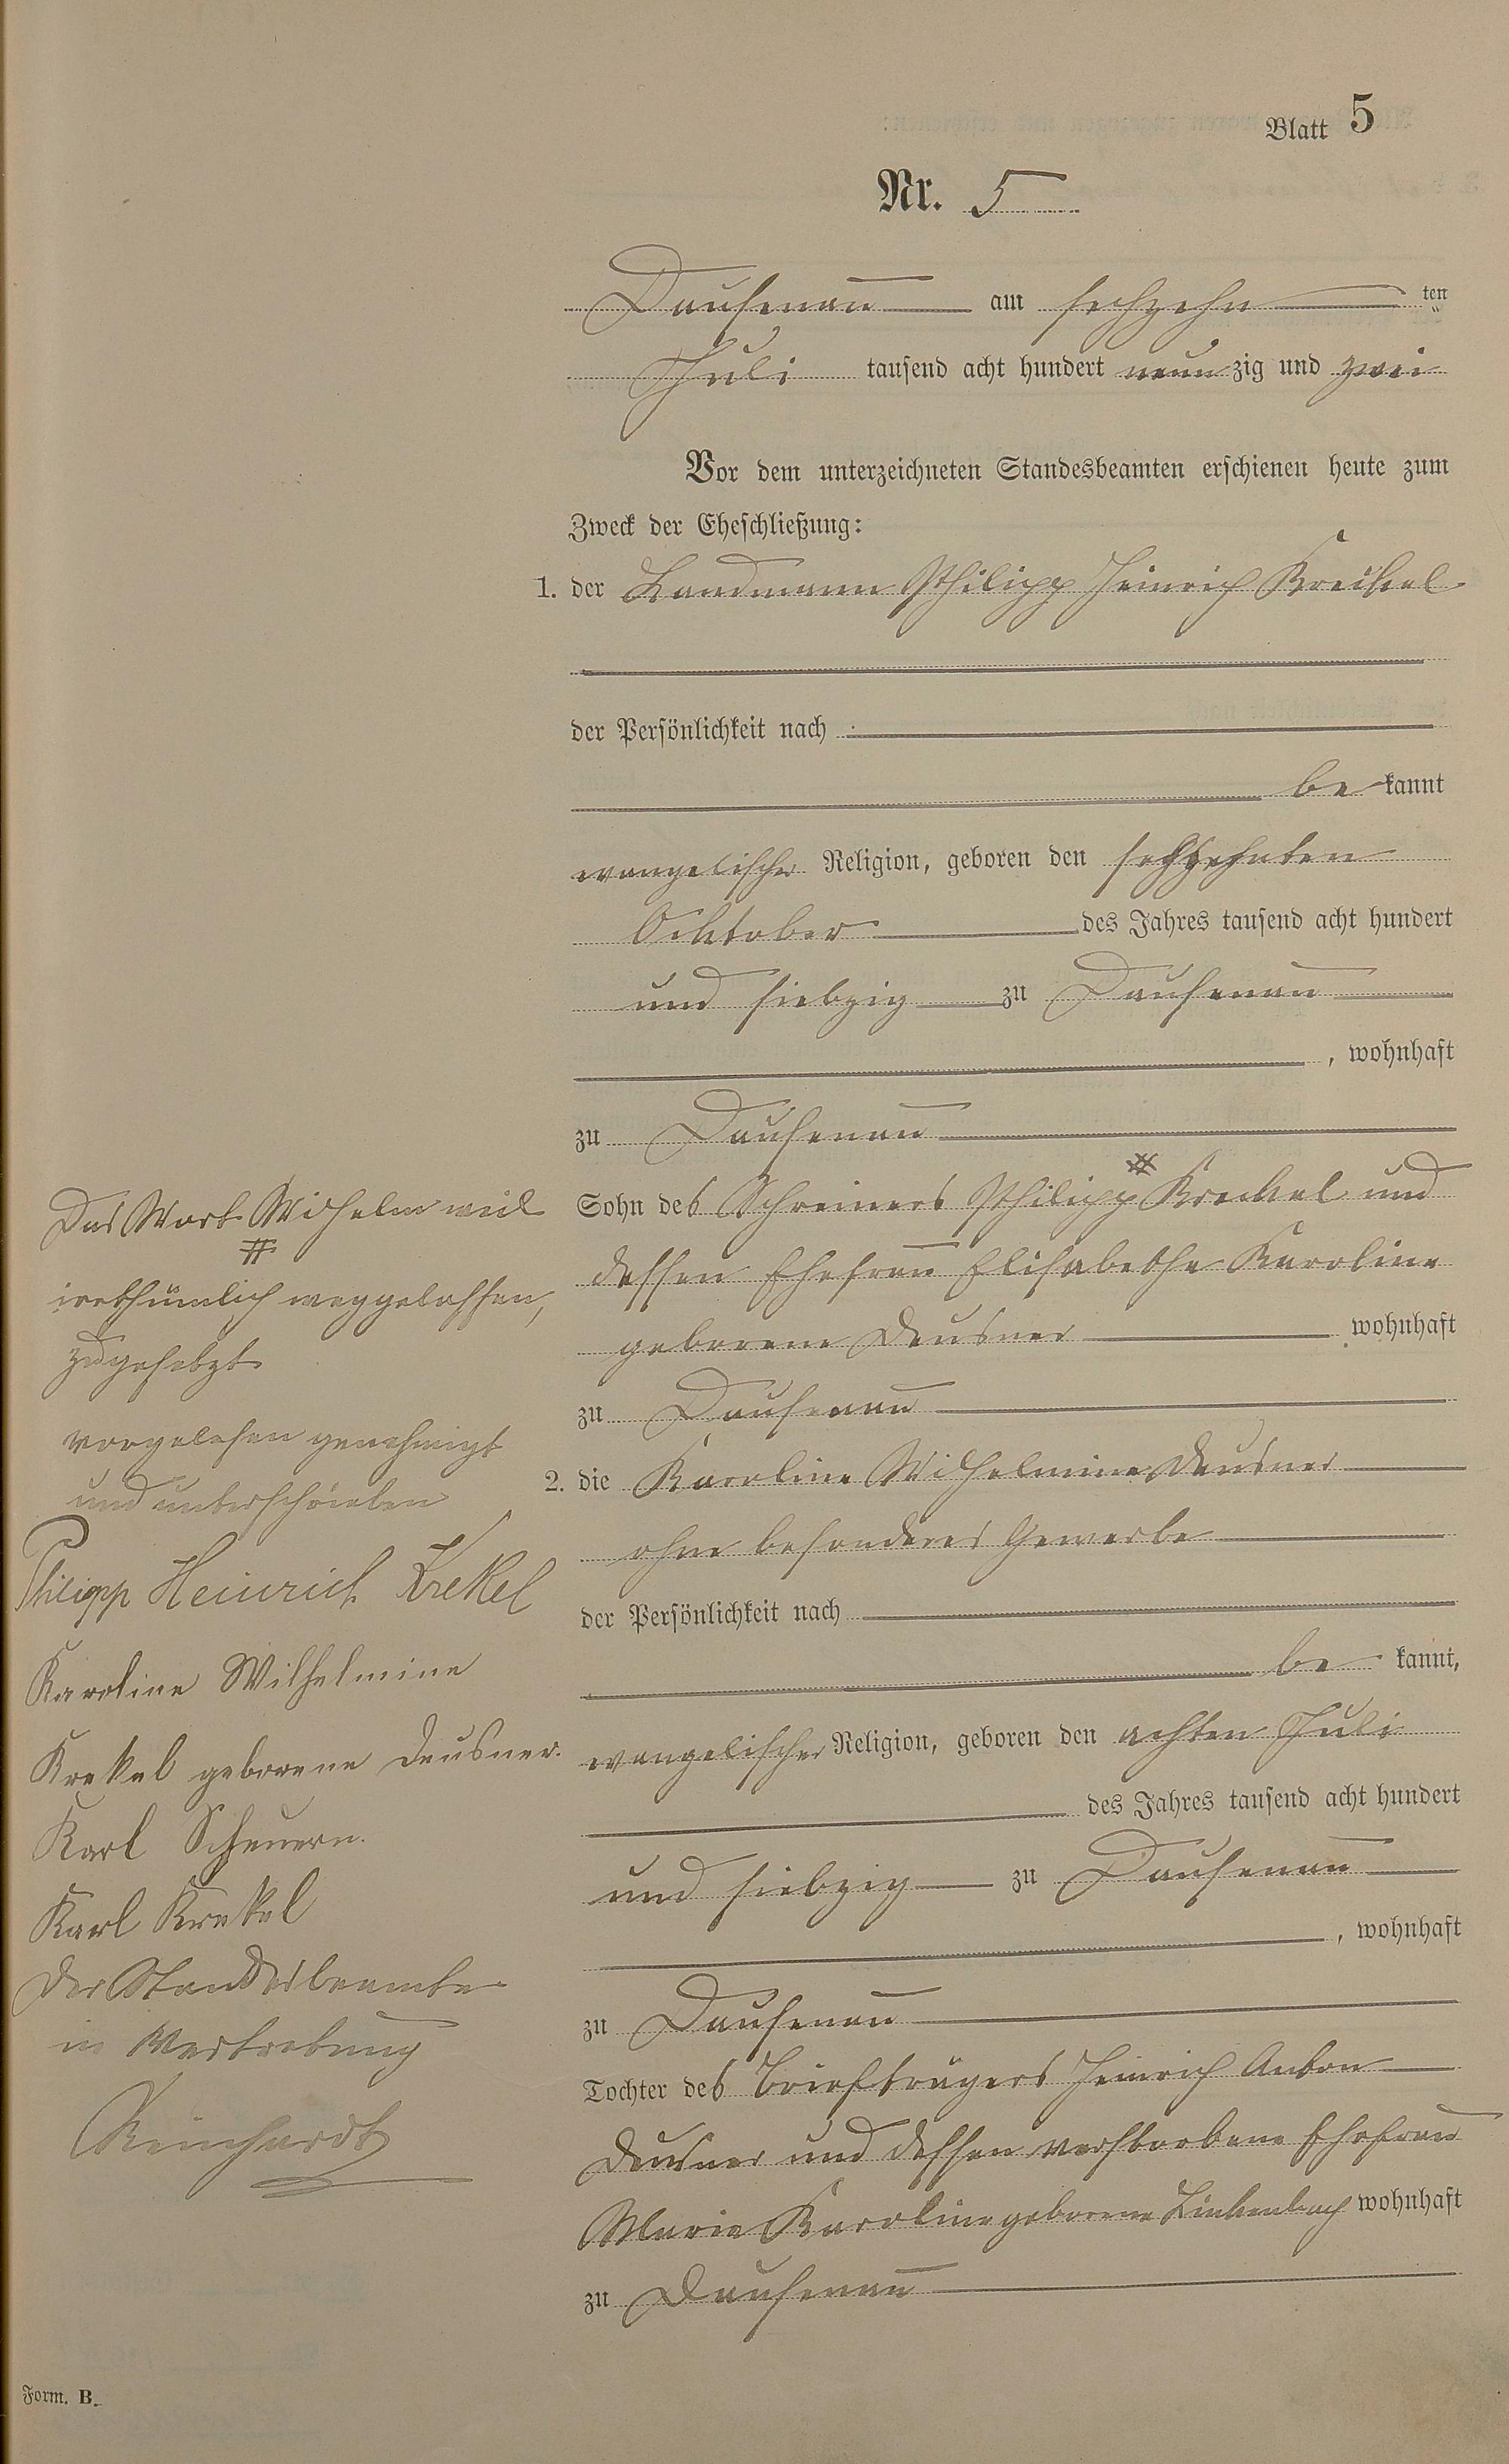 Blatt 5
Nr. 5
Dausenau am sechzehn ten
Juli tausend acht hundert neun zig und zwei
Vor dem unterzeichneten Standesbeamten erschienen heute zum
Zweck der Eheschließung:
1. der Landmann Philipp Heinrich Kreckel
der Persönlichkeit nach
be kannt
evangelischer Religion, geboren den sechzehnten
October des Jahres tausend acht hundert
und siebzig zu Dausenau
, wohnhaft
zu Dausenau
Sohn des Schreiners Philipp # Kreckel und
dessen Ehefrau Elisabethe Karoline
geborene Deusner wohnhaft
zu Dausenau
2. die Karoline Wilhelmine Deusner
ohne besonderes Gewerbe
der Persönlichkeit nach
be kannt,
evangelischer Religion, geboren den achten Juli
des Jahres tausend acht hundert
und siebzig zu Dausenau
, wohnhaft
zu Dausenau
Tochter des Briefträgers Heinrich Anton
Deusner und dessen verstorbene Ehefrau
Maria Karoline geborene Linkenbach wohnhaft
zu Dausenau
Das Wort Wilhelm weil
#
irrthümlich weggelassen,
zugesetzt
vorgelesen genehmigt
und unterschrieben
Philipp Heinrich Krekel
Karoline Wilhelmine
Krekel geborene Deusner.
Karl Scheuern.
Karl Krekel
Der Standesbeamte
in Vertretung
Reinhardt
Form. B.